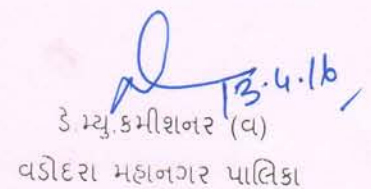 13.4.16
ડે.મ્યુ.કમીશનર (વ)
વડોદરા મહાનગર પાલિકા